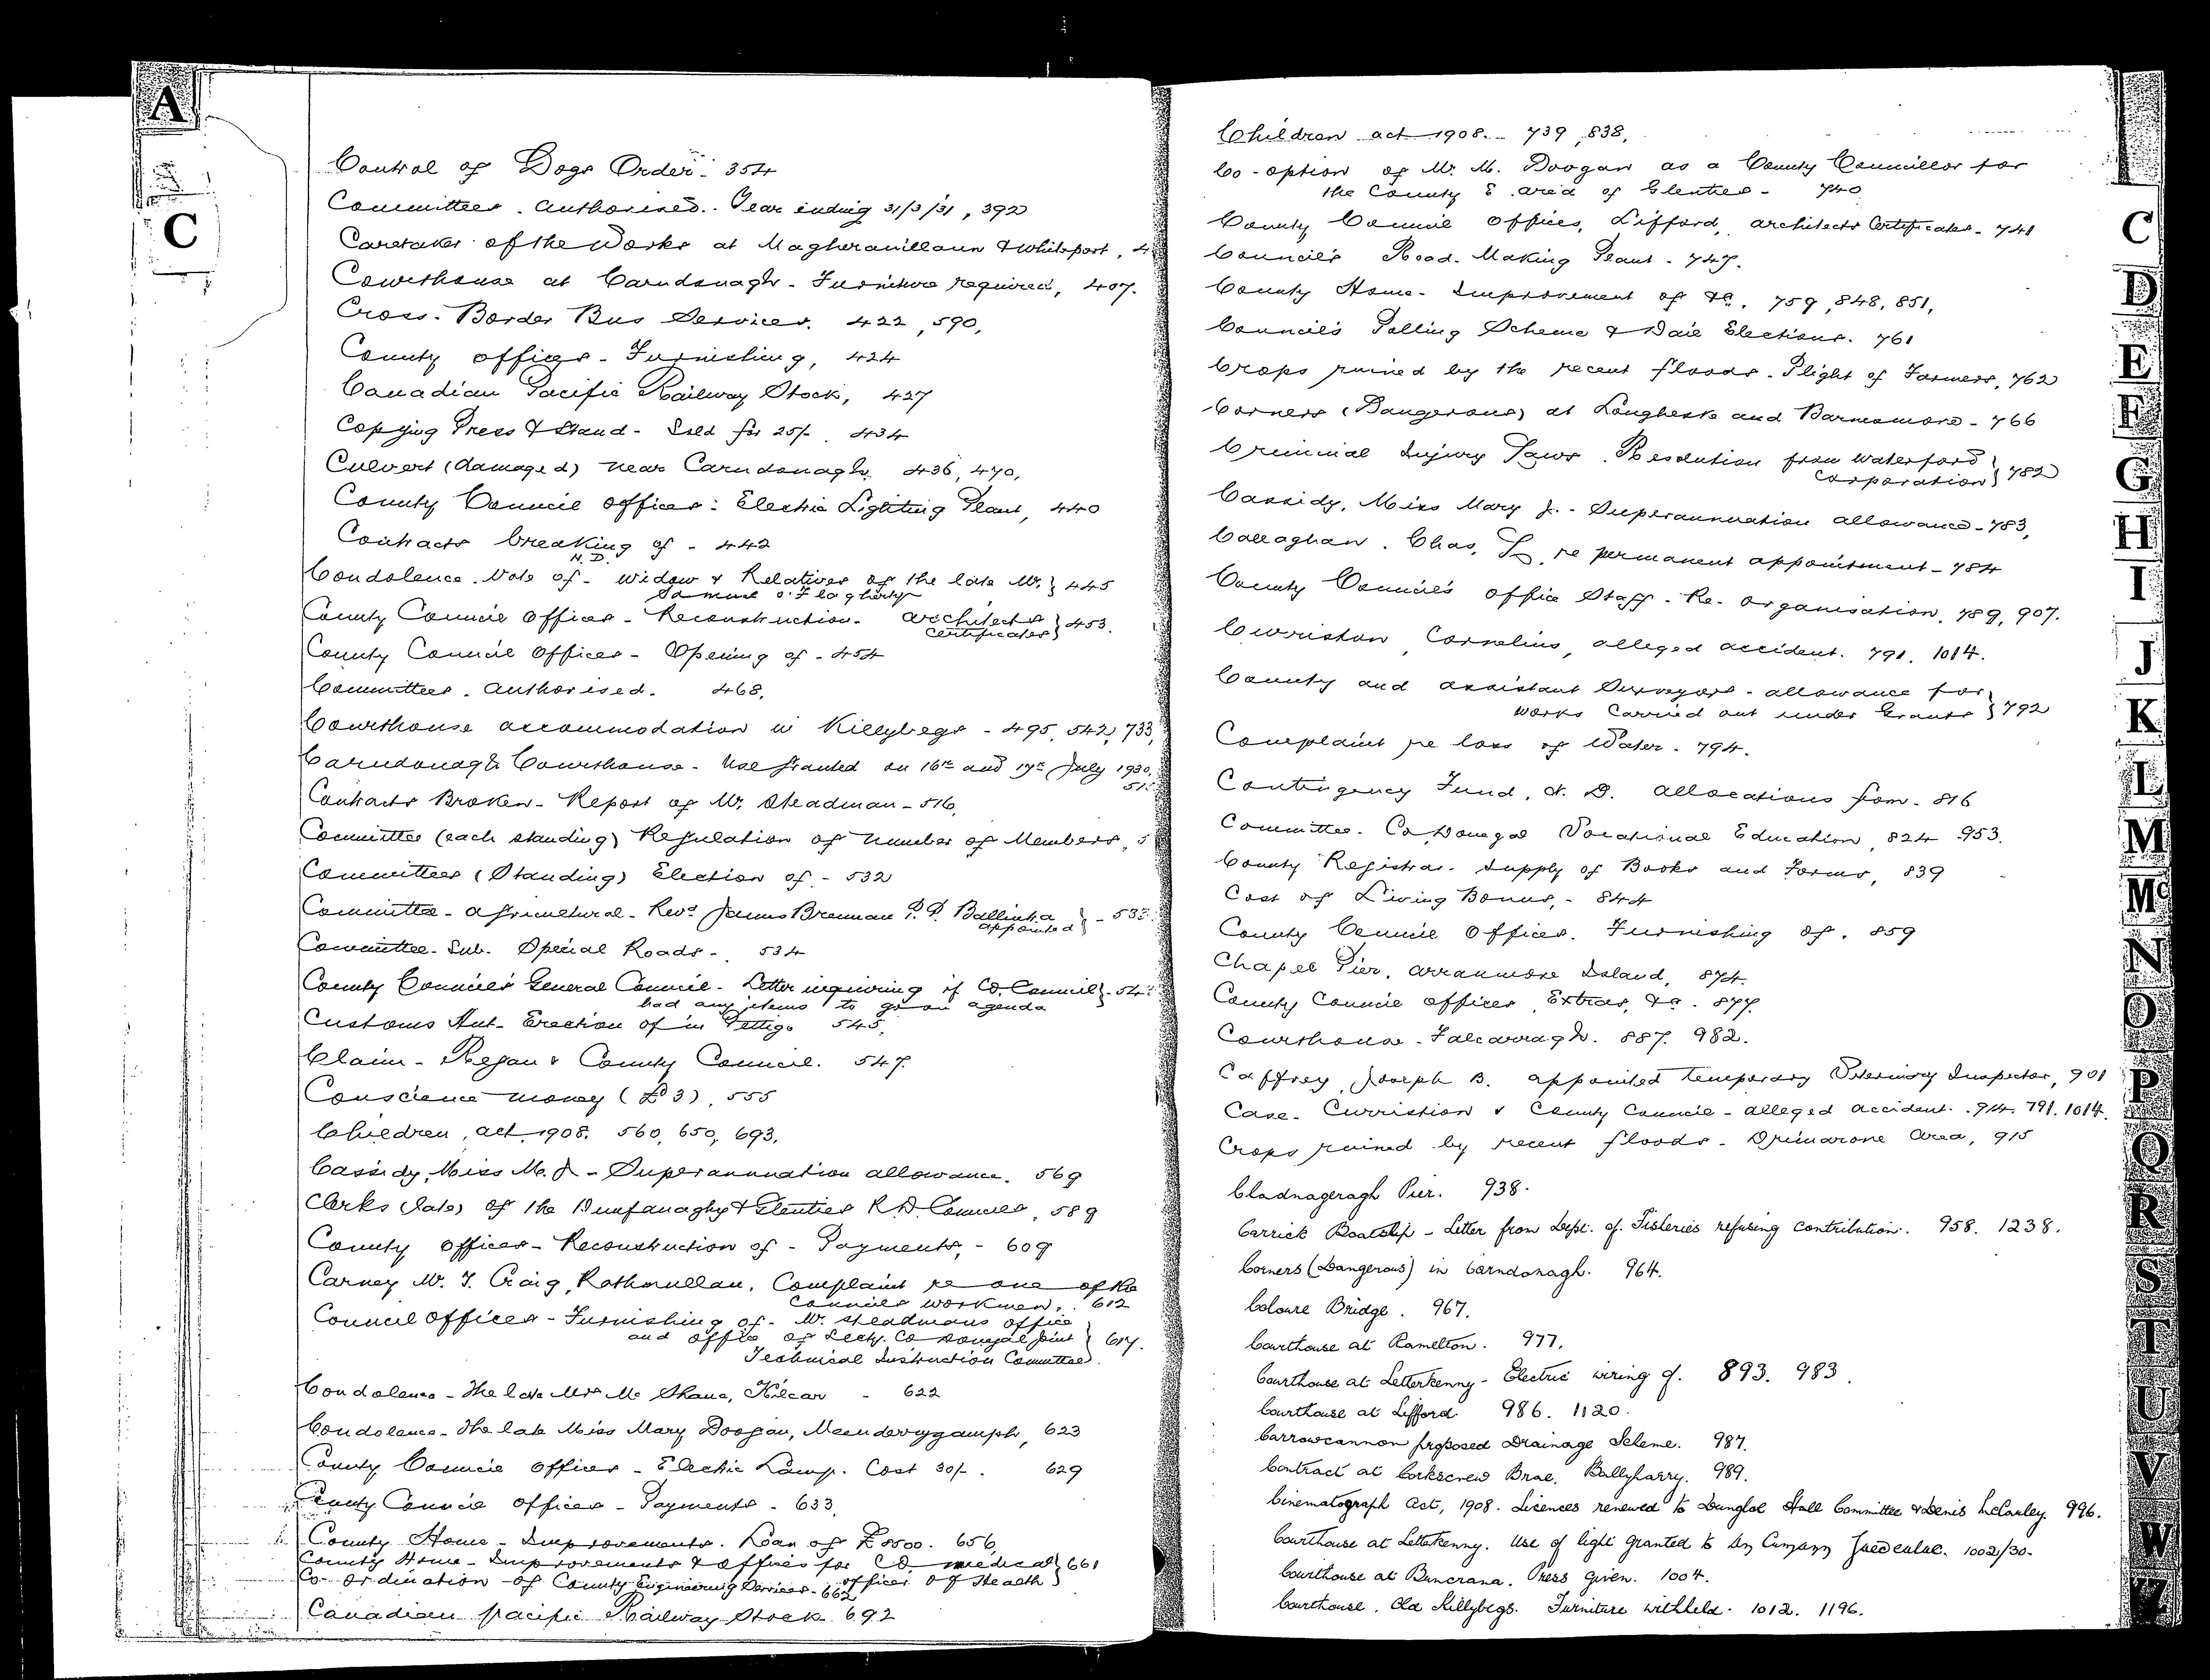 A
C
Control of Dogs Order - 354
Committees. Authorised. Year ending 31/3/31, 392
Caretaker of the Works at Magheranillaun & Whiteport, 4
Courthouse at Carndonagh - Furniture required, 407.
Cross-Border Bus Services. 422, 590,
County offices - Furnishing, 424
Canadian Pacific Railway Stock, 427
Copying Press & Stand - Sold for 25/-. 434
Culvert (damaged) near Carndonagh. 436, 470,
County Council offices: Electric Lighting Plant, 440
Contracts breaking of - 442
Condolence. Vote of - N.D. widow & Relatives of the late Mr. } 445
Samuel O'Flagherty
County Council Offices - Reconstruction. architects } 453.
certificates }
County Council Offices - Opening of - 454
Committees. Authorised. 468,
Courthouse accommodation in Killybegs - 495, 542, 733,
Carndonagh Courthouse - Use granted on 16th and 17th July 1930,
51
Contracts Broken - Report of Mr. Steadman - 516,
Committee (each standing) Regulation of number of Members, 5
Committees (Standing) Election of - 532
Committee - agricultural - Revd James Brennan P.P. Ballintra } - 533
appointed }
Committee - Sub. Special Roads - 534
County Councils General Council - Letter inquiring if Co. Council } - 54
had any items to go on agenda
Customs Hut - Erection of in Pettigo 545,
Claim - Regan v County Council. 547.
Conscience money (£3), 555
Children, act, 1908. 560, 650, 693,
Cassidy, Miss M. J. - Superannuation allowance. 569
Clerks (late) of the Dunfanaghy & Glenties R.D. Councils, 589
County offices - Reconstruction of - Payments, - 609
Carney W. J. Craig, Rathmullan. Complaint re one of the
Councils workmen. 612
Council Offices - Furnishing of - Mr. Steadmans office
and office of Secty. Co Donegal Joint } 617.
Technical Instruction Committee }
Condolence - The late Mrs Mc Shane, Kilcar - 622
Condolence - The late Miss Mary Doogan, Meenderrygamph, 623
County Council offices - Electric Lamp. Cost 30/-. 629
County Council offices - Payments - 633,
County Home - Improvements. Loan of £8500. 656,
County Home - Improvements & offices for Co. medical } 661
officer of Health }
Co-ordination of County Engineering Services - 662
Canadian pacific Railway Stock 692
Children act 1908. - 739, 838,
Co-option of Mr. M. Doogan as a County Councillor for
the County E. area of Glenties - 740
County Council Offices, Lifford, architects Certificates - 741
Councils Road-Making Plant - 747.
County Home - Improvement of &c. 759, 848, 851,
Councils Polling Scheme & Dail Elections. 761
Crops ruined by the recent floods - Plight of Farmers, 762
Corners (Dangerous) at Lougheske and Barnesmore - 766
Criminal Injury Laws. Resolution from Waterford } 782
Corporation }
Cassidy, Miss Mary J. - Superannuation allowance - 783,
Callaghan. Chas, re permanent appointment - 784
County Councils office Staff - Re-organisation, 789, 907.
Curristan, Cornelius, alleged accident. 791. 1014.
County and assistant Surveyors - allowance for }
works carried out under Grants } 792
Complaint re loss of Water. 794.
Contingency Fund, N. D. allocations from - 816
Committee. Co. Donegal Vocational Education, 824 953.
County Registrar. Supply of Books and Forms, 839
Cost of Living Bonus, - 844
County Council Offices. Furnishing of. 859
Chapel Pier, Arranmore Island, 874.
County Council offices Extras, &c. 877.
Courthouse - Falcarragh. 887. 982.
Caffrey, Joseph B. appointed temporary Veterinary Inspector, 901
Case - Curristion v County Council - alleged accident. 914. 791. 1014.
Crops ruined by recent floods - Drimarone area, 915
Cladnageragh Pier. 938.
Carrick Boatslip - Letter from Dept. of Fisheries refusing contribution. 958. 1238.
Corners (Dangerous) in Carndonagh. 964.
Colowe Bridge. 967.
Courthouse at Ramelton. 977.
Courthouse at Letterkenny - Electric wiring of. 893. 983.
Courthouse at Lifford 986. 1120.
Carrowcannon proposed Drainage Scheme. 987.
Contract at Corkscrew Brae, Ballyharry. 989.
Cinematograph Act, 1908. Licences renewed to Dungloe Hall Committee & Denis McCauley 996.
Courthouse at Letterkenny. Use of light granted to 1002/30.
Courthouse at Buncrana. Press given. 1004.
Courthouse. Old Killybegs. Furniture withheld. 1012. 1196.
C
D
E
F
G
H
I
J
K
L
M
Mc
N
O
P
Q
R
S
T
U
V
W
YZ